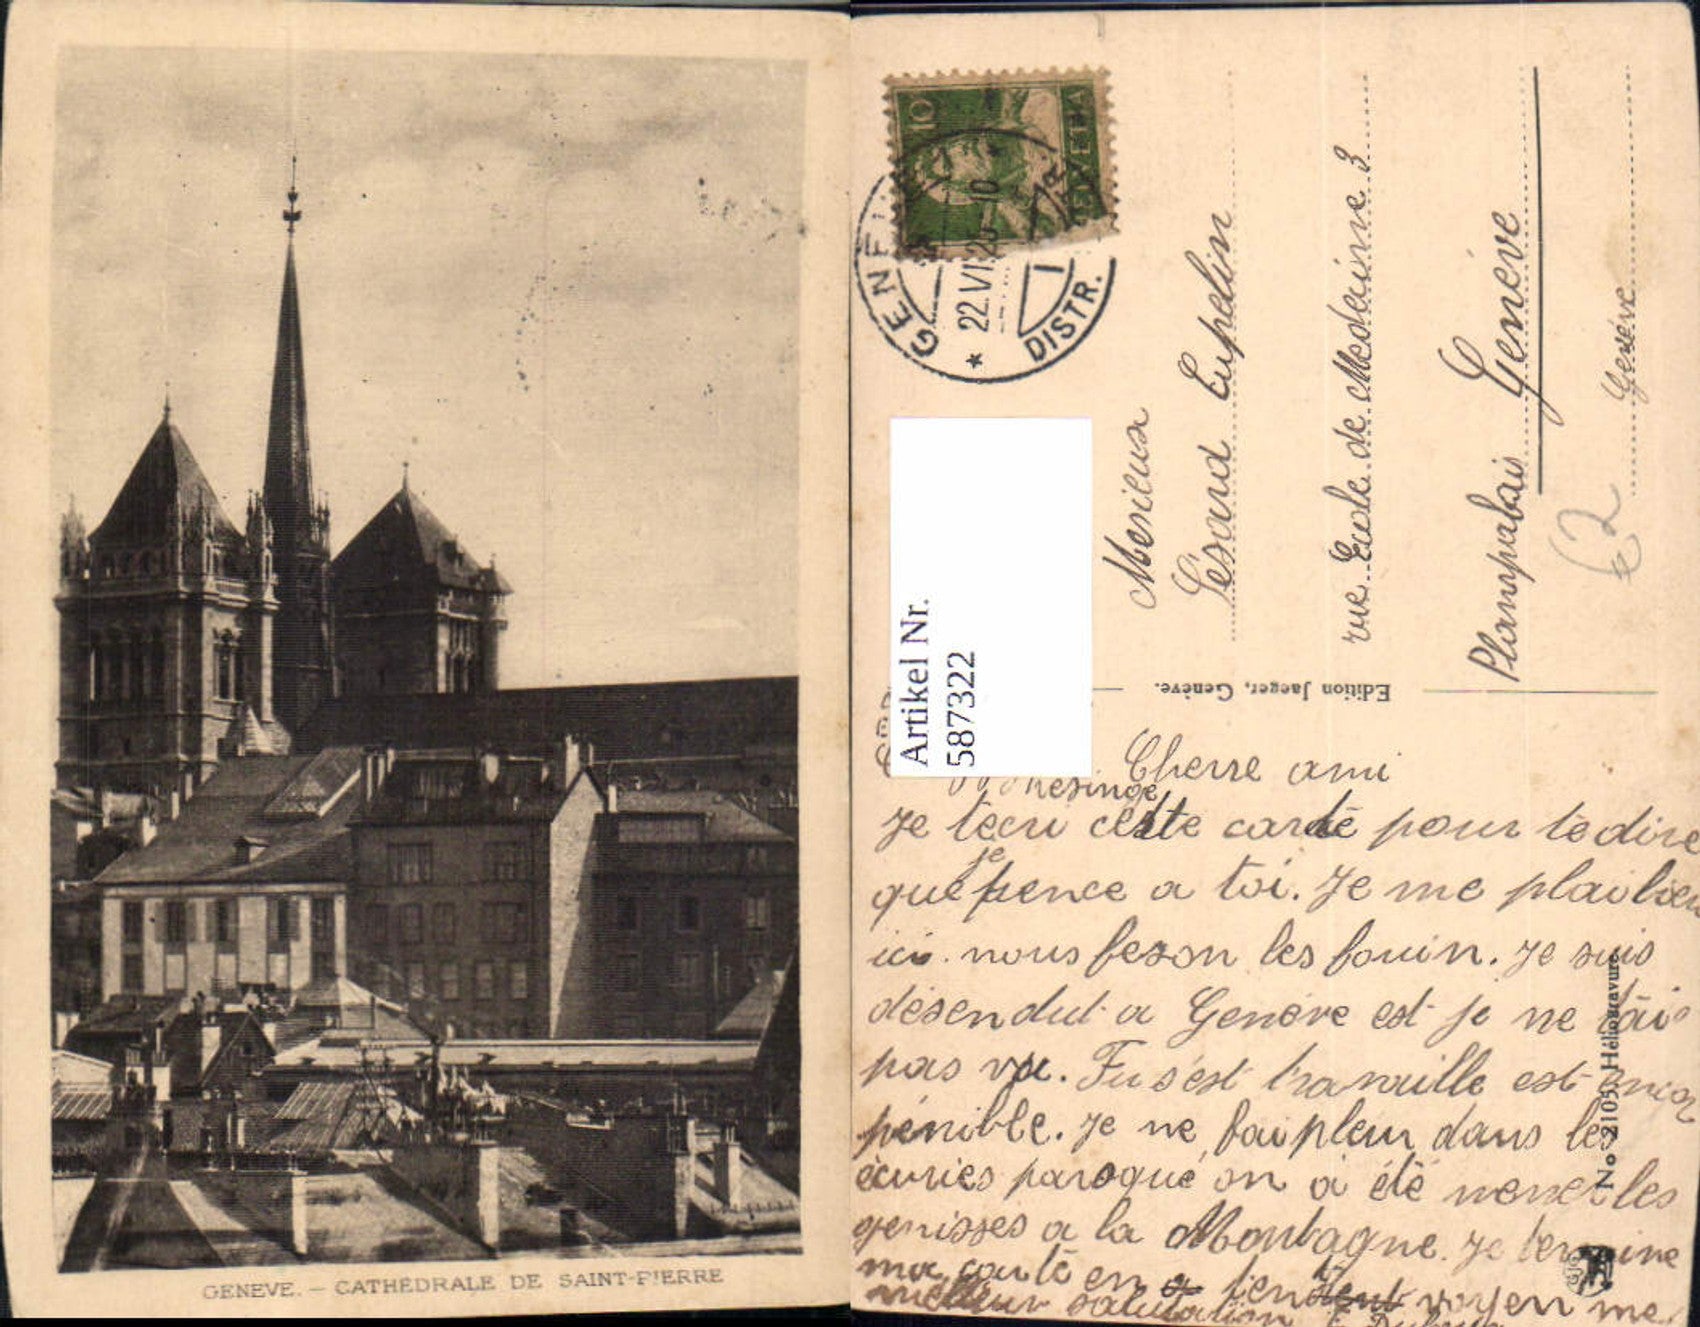 GENEVE. — CATHÉDRALE DE SAINT-PIERRE
10
HELVETIA
GENÈVE 1
22.VI.25-10
DISTR.
Artikel Nr.
587322
Mesieux
Césard Cupelin
rue Ecole de Medeinne 3
Plampalais Genève
Genève
62
Edition Jaeger, Genève.
No 2105. Héliogravure
Presinge
Cherre ami
Je tecri cette carte pour te dire
que je pence a toi. Je me plai bien
ici. nous feson les fouin. Je suis
désendut a Genève est je ne tai
pas vu. Tu s'est travaille est
pénible. Je ne fai pleu dans les
écuries parsque on a été mener les
genisses a la Montagne. Je termine
ma carte en voyen me
meilleur salutation